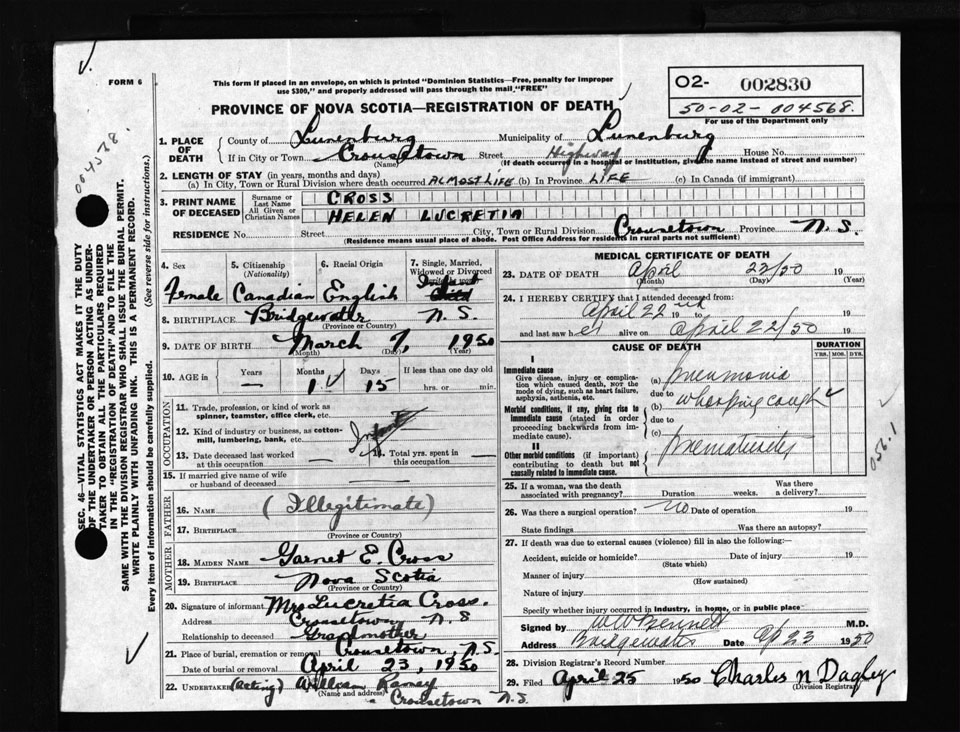 FORM 6
This form if placed in an envelope, on which is printed "Dominion Statistics—Free, penalty for improper
use $300," and properly addressed will pass through the mail "FREE"
PROVINCE OF NOVA SCOTIA—REGISTRATION OF DEATH
O2- 002830
50-02-004568.
For use of the Department only
1. PLACE OF DEATH
County of Lunenburg Municipality of Lunenburg
If in City or Town Crousetown Street Highway House No.
(Name) (If death occurred in a hospital or institution, give the name instead of street and number)
2. LENGTH OF STAY (in years, months and days)
(a) In City, Town or Rural Division where death occurred ALMOST LIFE (b) In Province LIFE (c) In Canada (if immigrant)
3. PRINT NAME OF DECEASED
Surname or Last Name CROSS
All Given or Christian Names HELEN LUCRETIA
RESIDENCE No. Street City, Town or Rural Division Crousetown Province N.S.
(Residence means usual place of abode. Post Office Address for residents in rural parts not sufficient)
4. Sex
Female
5. Citizenship (Nationality)
Canadian
6. Racial Origin
English
7. Single, Married, Widowed or Divorced
8. BIRTHPLACE Bridgewater N.S.
(Province or Country)
9. DATE OF BIRTH March 7, 1950
(Month) (Day) (Year)
10. AGE in Years — Months 1 Days 15 If less than one day old
hrs. or min.
OCCUPATION
11. Trade, profession, or kind of work as spinner, teamster, office clerk, etc.
12. Kind of industry or business, as cotton-mill, lumbering, bank, etc.
Infant
13. Date deceased last worked at this occupation
14. Total yrs. spent in this occupation
15. If married give name of wife or husband of deceased
FATHER
16. NAME (Illegitimate)
17. BIRTHPLACE
(Province or Country)
MOTHER
18. MAIDEN NAME Garnet E. Cross
19. BIRTHPLACE Nova Scotia
(Province or Country)
20. Signature of informant Mrs Lucretia Cross.
Address Crousetown N.S
Relationship to deceased Grandmother
21. Place of burial, cremation or removal Crousetown, N.S.
Date of burial or removal April 23, 1950
22. UNDERTAKER (Acting) William Ramey
(Name and address)
Crousetown N.S.
MEDICAL CERTIFICATE OF DEATH
23. DATE OF DEATH April 22/50 19
(Month) (Day) (Year)
24. I HEREBY CERTIFY that I attended deceased from:
April 22nd 19 to 19
and last saw her alive on April 22/50 19
CAUSE OF DEATH
DURATION
YRS. MOS. DYS.
I
Immediate cause
Give disease, injury or complication which caused death, NOT the mode of dying, such as heart failure, asphyxia, asthenia, etc.
(a) Pneumonia
due to
Morbid conditions, if any, giving rise to immediate cause (stated in order proceeding backwards from immediate cause).
(b) Whooping cough
due to
(c)
II
Other morbid conditions (if important) contributing to death but not causally related to immediate cause.
Prematurity
056.1
25. If a woman, was the death associated with pregnancy? Duration weeks. Was there a delivery?
26. Was there a surgical operation? No Date of operation 19
State findings Was there an autopsy?
27. If death was due to external causes (violence) fill in also the following:
Accident, suicide or homicide? Date of injury 19
(State which)
Manner of injury
(How sustained)
Nature of injury
Specify whether injury occurred in industry, in home, or in public place
Signed by W W Bennett M.D.
Address Bridgewater Date Ap 23 1950
28. Division Registrar's Record Number
29. Filed April 25 1950 Charles N Dagley
(Division Registrar)
SEC. 46—VITAL STATISTICS ACT MAKES IT THE DUTY
OF THE UNDERTAKER OR PERSON ACTING AS UNDER-
TAKER TO OBTAIN ALL THE PARTICULARS REQUIRED
IN THE "REGISTRATION OF DEATH" AND TO FILE THE
SAME WITH THE DIVISION REGISTRAR WHO SHALL ISSUE THE BURIAL PERMIT.
WRITE PLAINLY WITH UNFADING INK. THIS IS A PERMANENT RECORD.
Every item of information should be carefully supplied. (See reverse side for instructions.)